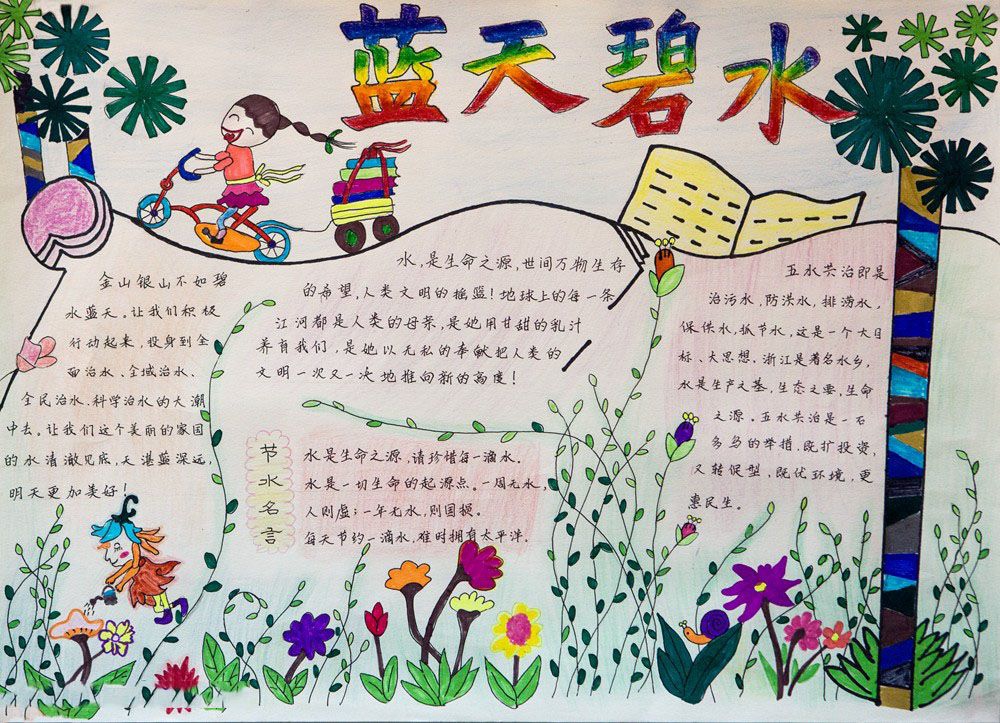 蓝天碧水
金山银山不如碧
水蓝天。让我们积极
行动起来，投身到全
面治水、全域治水、
全民治水、科学治水的大潮
中去。让我们这个美丽的家园
的水清澈见底，天湛蓝深远，
明天更加美好！
水，是生命之源，世间万物生存
的希望，人类文明的摇篮！地球上的每一条
江河都是人类的母亲，是她用甘甜的乳汁
养育我们，是她以无私的奉献把人类的
文明一次又一次地推向新的高度！
节水名言
水是生命之源，请珍惜每一滴水。
水是一切生命的起源点。一周无水，
人则虚；一年无水，则国损。
每天节约一滴水，难时拥有太平洋。
五水共治即是
治污水，防洪水，排涝水，
保供水，抓节水，这是一个大目
标、大思想。浙江是著名水乡，
水是生产之基，生态之要，生命
之源。五水共治是一石
多鸟的举措，既扩投资，
又转促型，既优环境，更
惠民生。